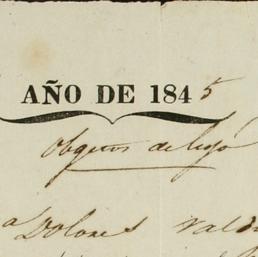 AÑO DE 1845
Obgetos de lujo
a Dolores Vald